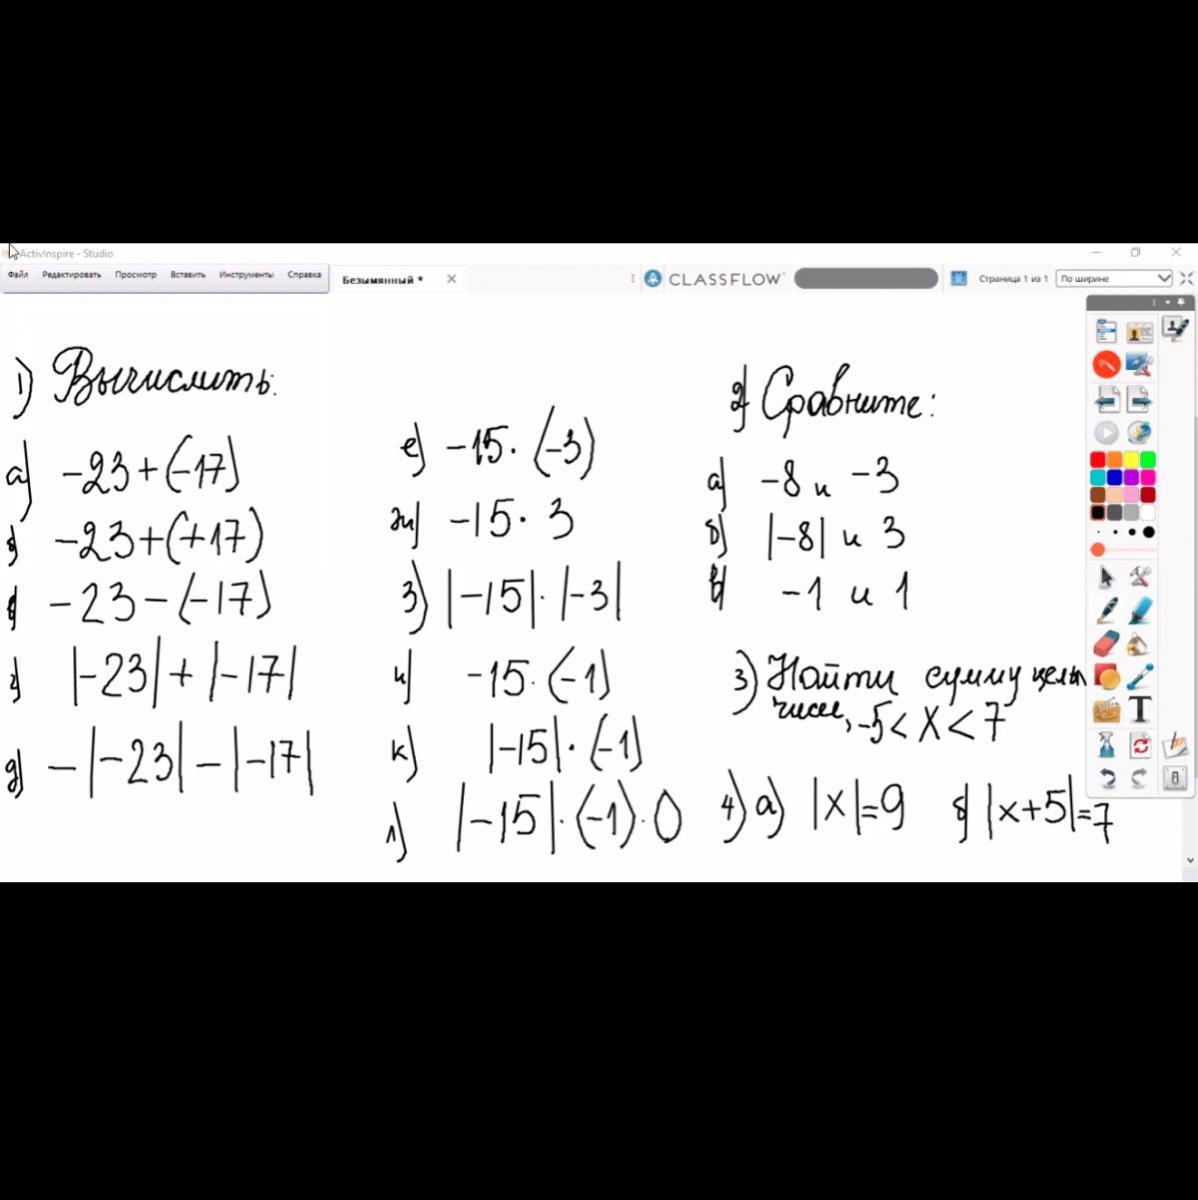 ActivInspire - Studio
Файл Редактировать Просмотр Вставить Инструменты Справка
Безымянный *
CLASSFLOW
Страница 1 из 1
По ширине
1) Вычислить:
а) -23+(-17)
б) -23+(+17)
в) -23-(-17)
г) |-23|+|-17|
д) -|-23|-|-17|
е) -15·(-3)
ж) -15·3
з) |-15|·|-3|
и) -15·(-1)
к) |-15|·(-1)
л) |-15|·(-1)·0
2) Сравните:
а) -8 и -3
б) |-8| и 3
в) -1 и 1
3) Найти сумму целы
чисел, -5<X<7
4) а) |x|=9 б) |x+5|=7
T